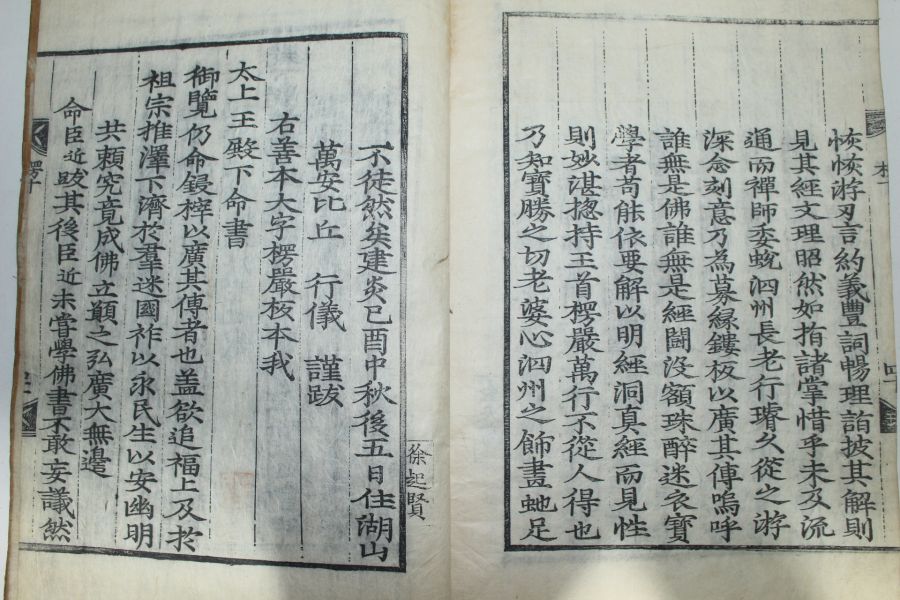 恢恢游刃言約義豐詞暢理詣披其解則
見其經文理昭然如指諸掌惜乎未及流
通而禪師委蛻泗州長老行璿久從之游
深念刻意乃為募緣鏤板以廣其傳嗚呼
誰無是佛誰無是經鬪沒額珠醉迷衣寶
學者苟能依要解以明經洞真經而見性
則妙湛揔持王首楞嚴萬行不從人得也
乃知寶勝之切老婆心泗州之飾畫虵足
徐起賢
不徒然矣建炎己酉中秋後五日住湖山
萬安比丘 行儀 謹跋
右善本大字楞嚴板本我
太上王殿下命書
御覽仍命鋟梓以廣其傳者也盖欲追福上及於
祖宗推澤下濟於羣迷國祚以永民生以安幽明
共賴究竟成佛立願之弘廣大無邊
命臣近跋其後臣近未嘗學佛書不敢妄議然
楞十